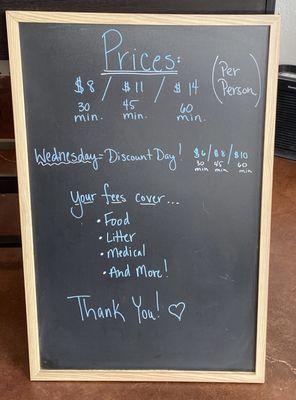 Prices:
$8 / $11 / $14 (Per Person)
30 min. 45 min. 60 min.
Wednesday = Discount Day! $6/$8/$10
30 min 45 min 60 min
Your fees cover...
• Food
• Litter
• Medical
• And More!
Thank You! ♡